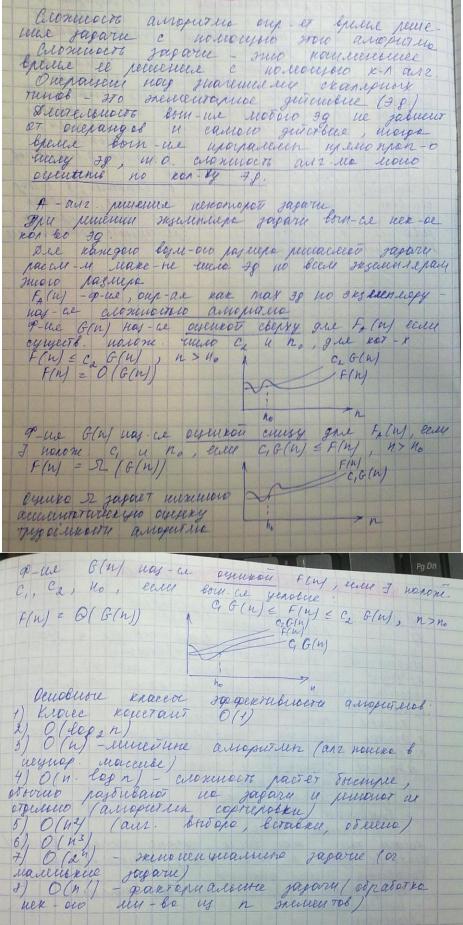 Сложность алгоритма опр-ет время реше-
ния задачи с помощью этого алгоритма
Сложность задачи - это наименьшее
время её решения с помощью к-л алг.
Операции над значениями скалярных
типов - это элементарное действие (Э.д.)
Длительность вып-ия любого Эд не зависит
от операндов и самого действия, тогда
время вып-ия программы прямо проп-о
числу Эд, т.о. сложность алг-ма можно
оценить по кол-ву Эд.
A - алг. решения некоторой задачи
При решении экземпляра задачи вып-ся нек-ое
кол-во Эд
Для каждого возм-ого размера решаемой задачи
рассм-м макс-ое число Эд по всем экземплярам
этого размера
F_A(n) - ф-ия, опр-ая как max Эд по экземпляру -
наз-ся сложностью алгоритма
Ф-ия G(n) наз-ся оценкой сверху для F_A(n) если
существ. полож. число C₂ и n₀, для кот-х
F(n) ≤ C₂ G(n), n > n₀
F(n) = O(G(n))
C₂ G(n)
F(n)
n₀
n
Ф-ия G(n) наз-ся оценкой снизу для F_A(n), если
∃ полож C₁ и n₀, если C₁G(n) ≤ F(n), n > n₀
F(n) = Ω(G(n))
F(n)
C₁G(n)
n₀
n
Оценка Ω задаёт нижнюю
асимптотическую оценку
трудоёмкости алгоритма
Pg Dn
Ф-ия G(n) наз-ся оценкой F(n), если ∃ полож.
C₁, C₂, n₀, если вып-ся условие
C₁ G(n) ≤ F(n) ≤ C₂ G(n), n > n₀
F(n) = Θ(G(n))
C₂G(n)
F(n)
C₁ G(n)
n₀
n
Основные классы эффективности алгоритмов
1) Класс констант O(1)
2) O(log₂ n)
3) O(n) - линейные алгоритмы (алг поиска в
неупор. массиве)
4) O(n·log n) - сложность растёт быстрее,
обычно разбивают на задачи и решают их
отдельно (алгоритмы сортировки)
5) O(n²) (алг. выбора, вставки, обмена)
6) O(n³)
7) O(2ⁿ) - экспоненциальные задачи (
маленькие задачи)
8) O(n!) - факториальные задачи (обработка
нек-ого мн-ва из n элементов)